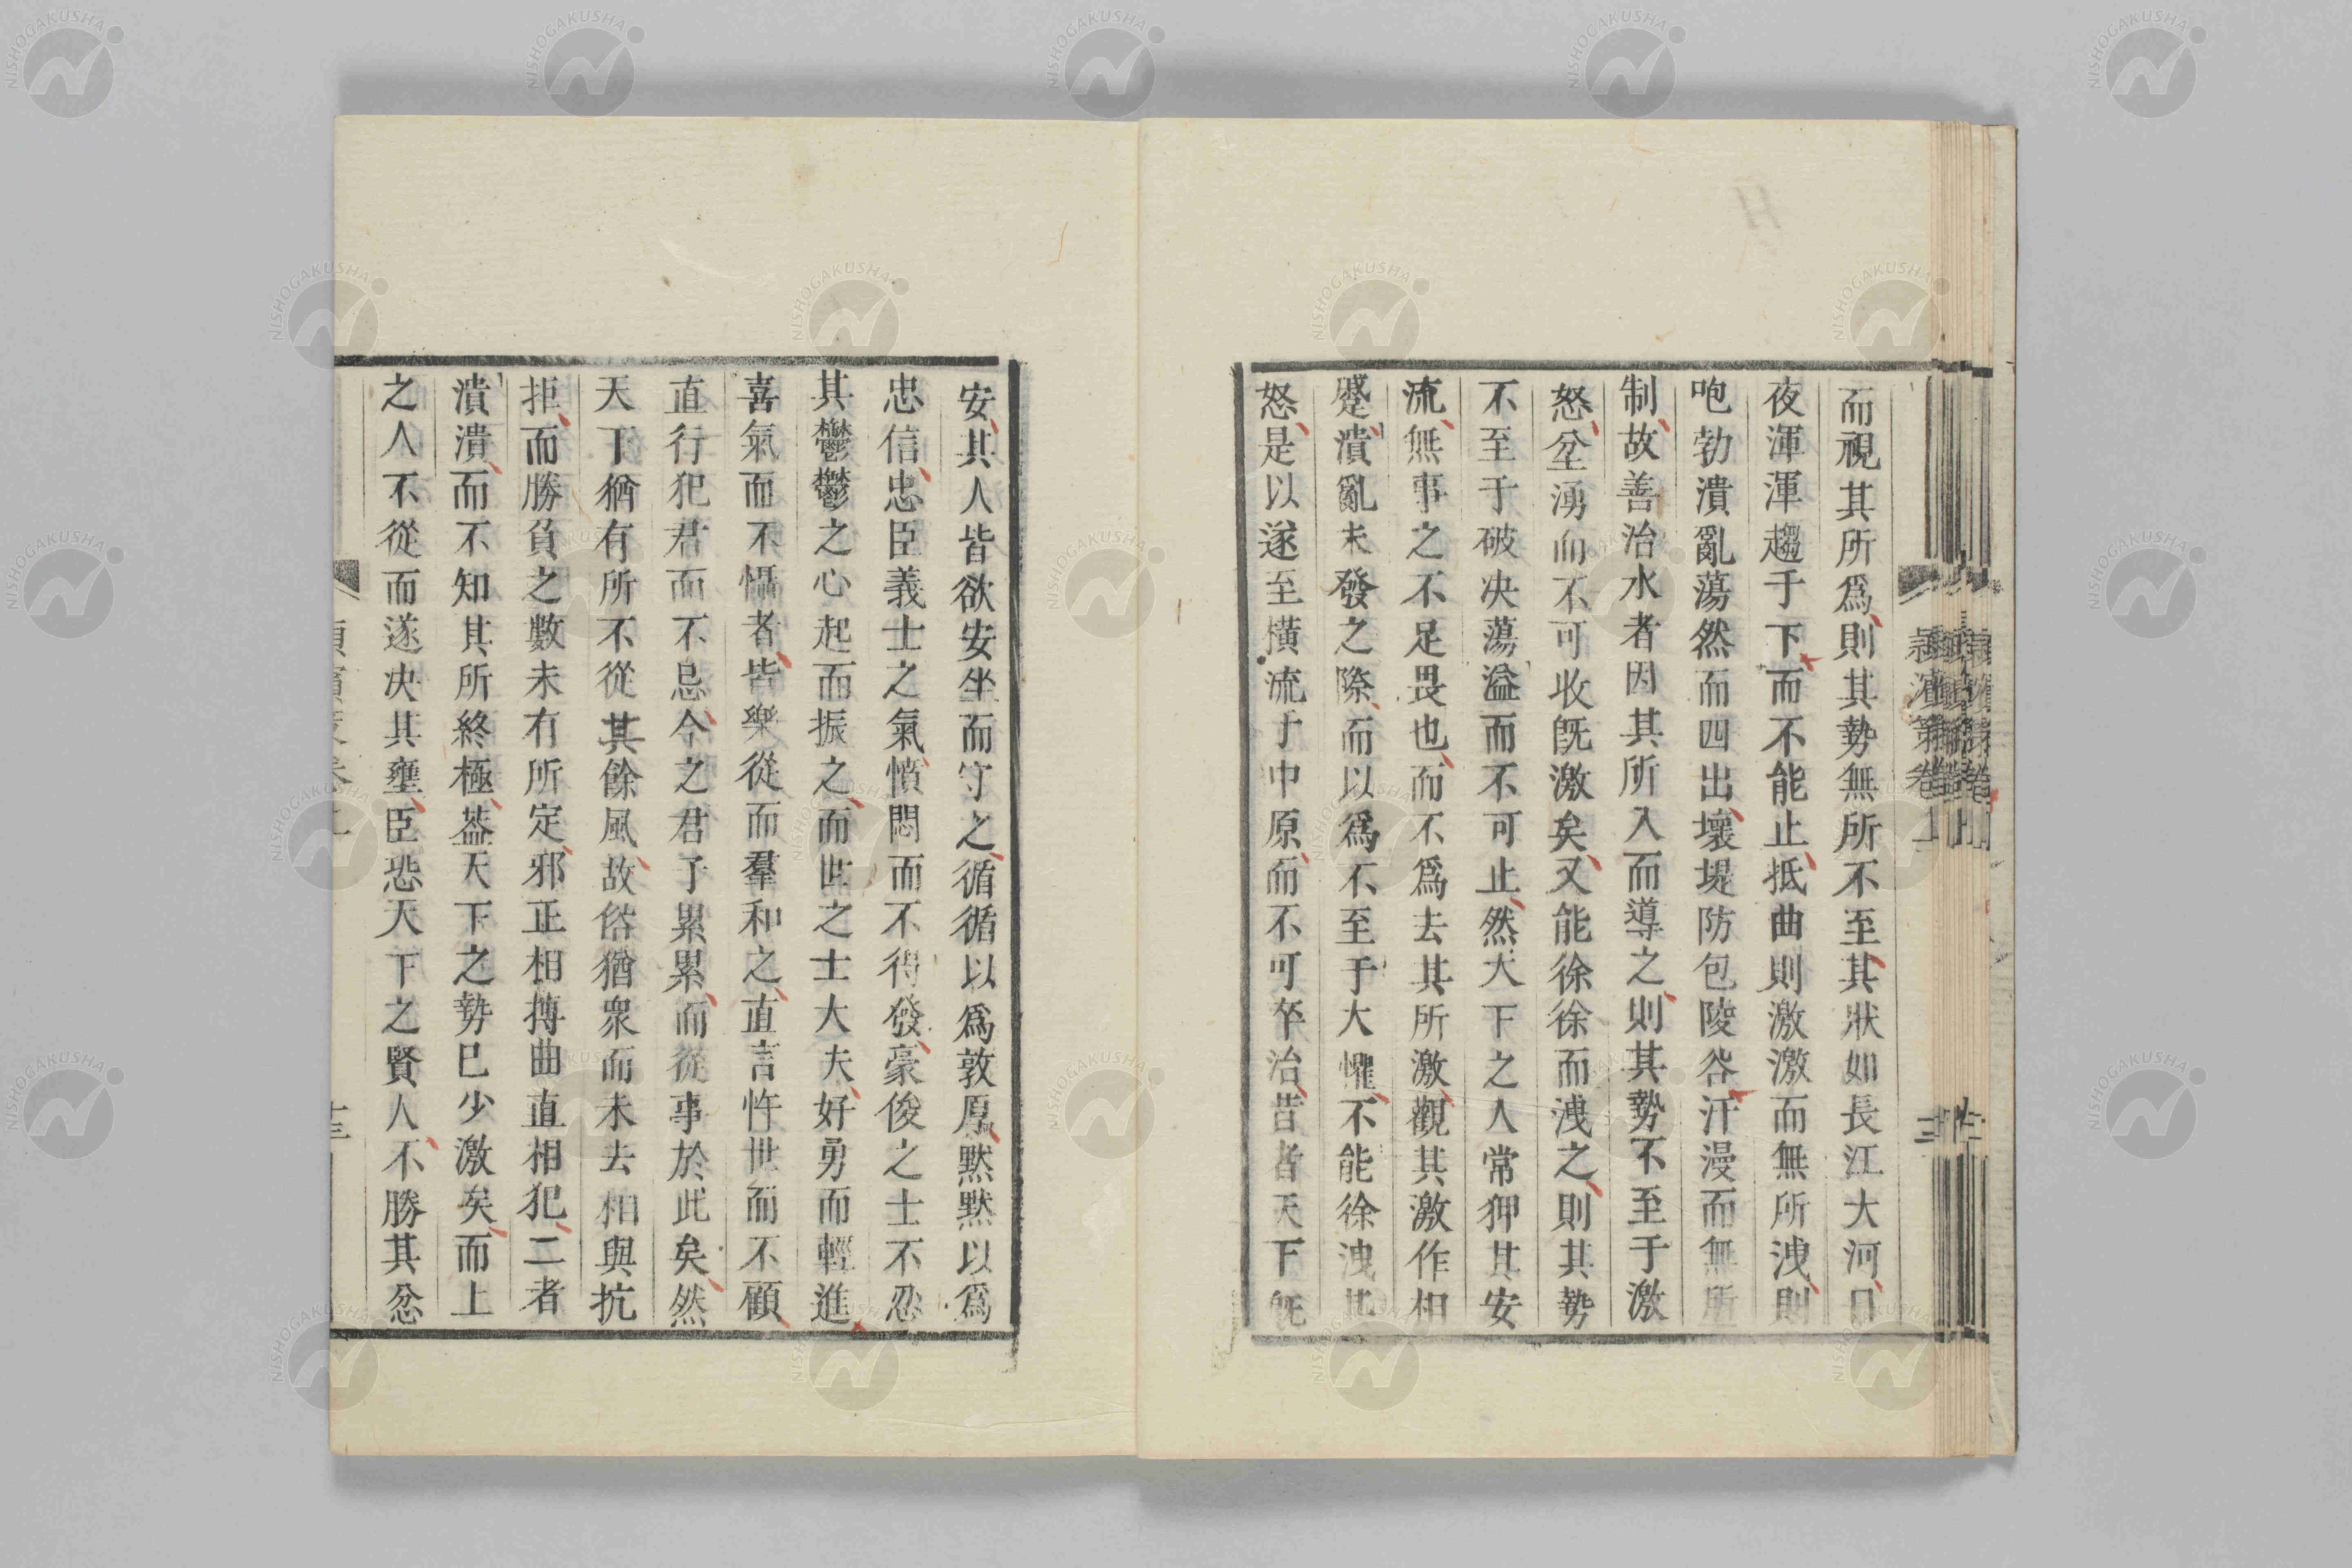 而視其所爲則其勢無所不至其狀如長江大河日
夜渾渾趨于下而不能止抵曲則激激而無所洩則
咆勃潰亂蕩然而四出壞堤防包陵谷汗漫而無所
制故善治水者因其所入而導之則其勢不至于激
怒坌湧而不可收旣激矣又能徐徐而洩之則其勢
不至于破決蕩溢而不可止然天下之人常狎其安
流無事之不足畏也而不爲去其所激觀其激作相
蹙潰亂未發之際而以爲不至于大懼不能徐洩其
怒是以遂至橫流于中原而不可卒治昔者天下旣
安其人皆欲安坐而守之循循以爲敦厚默默以爲
忠信忠臣義士之氣憤悶而不得發豪俊之士不忍
其鬱鬱之心起而振之而世之士大夫好勇而輕進
喜氣而不懾者皆樂從而羣和之直言忤世而不顧
直行犯君而不忌今之君子累累而從事於此矣然
天下猶有所不從其餘風故俗猶衆而未去相與抗
拒而勝負之數未有所定邪正相搏曲直相犯二者
潰潰而不知其所終極葢天下之勢已少激矣而上
之人不從而遂決其壅臣恐天下之賢人不勝其忿
十三
NISHOGAKUSHA